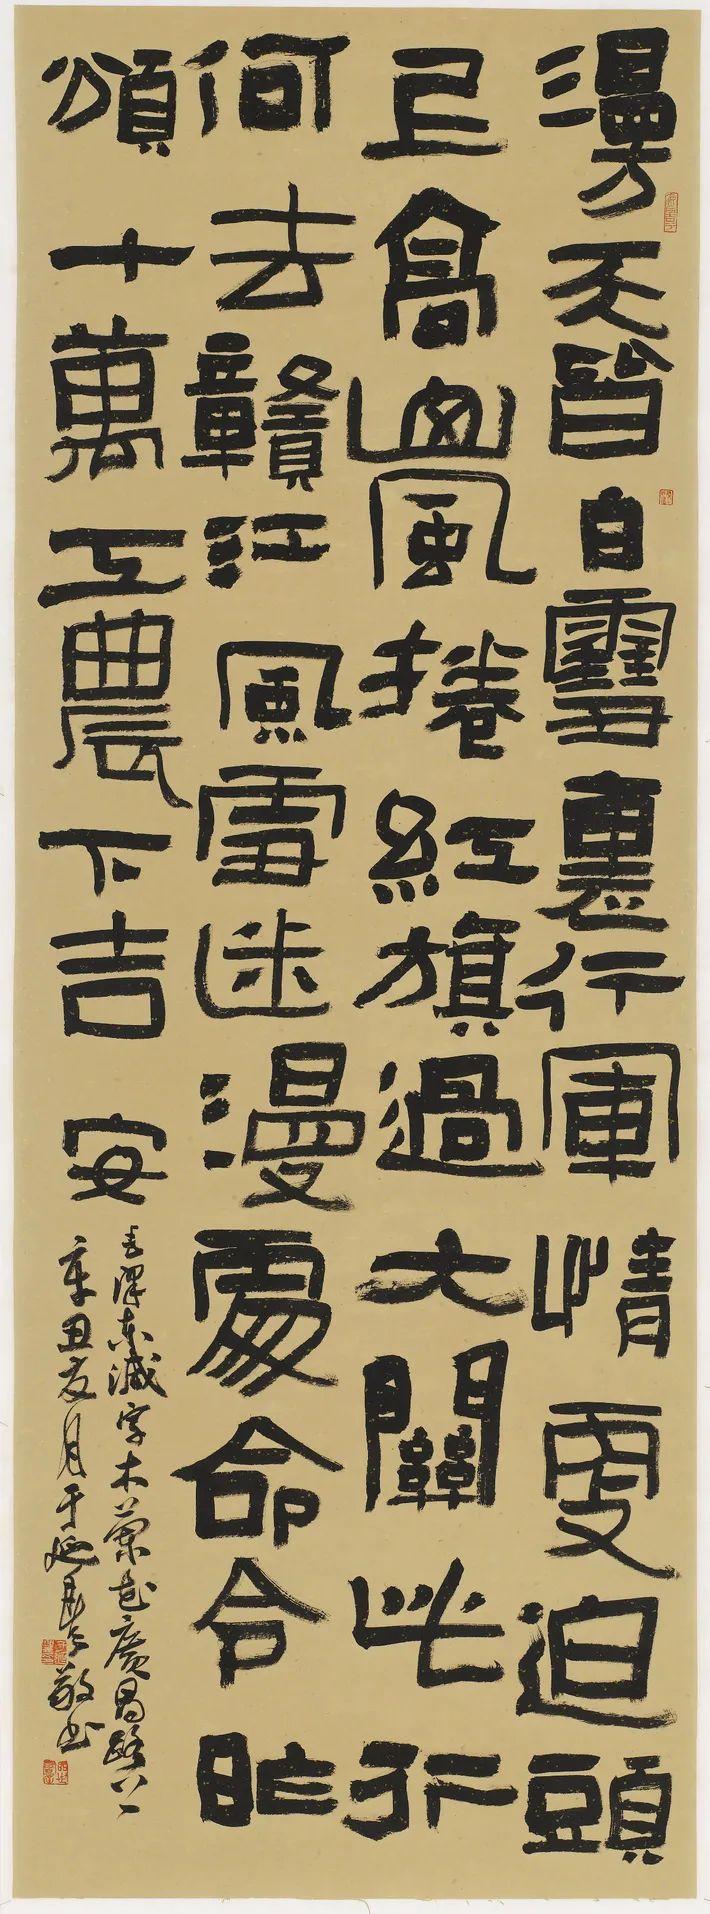 漫天皆白雪裏行軍情更迫頭
上高山風捲紅旗過大關此行
何去贛江風雪迷漫處命令昨
頌十萬工農下吉安
毛澤東減字木蘭花廣昌路
辛丑月于延敬书